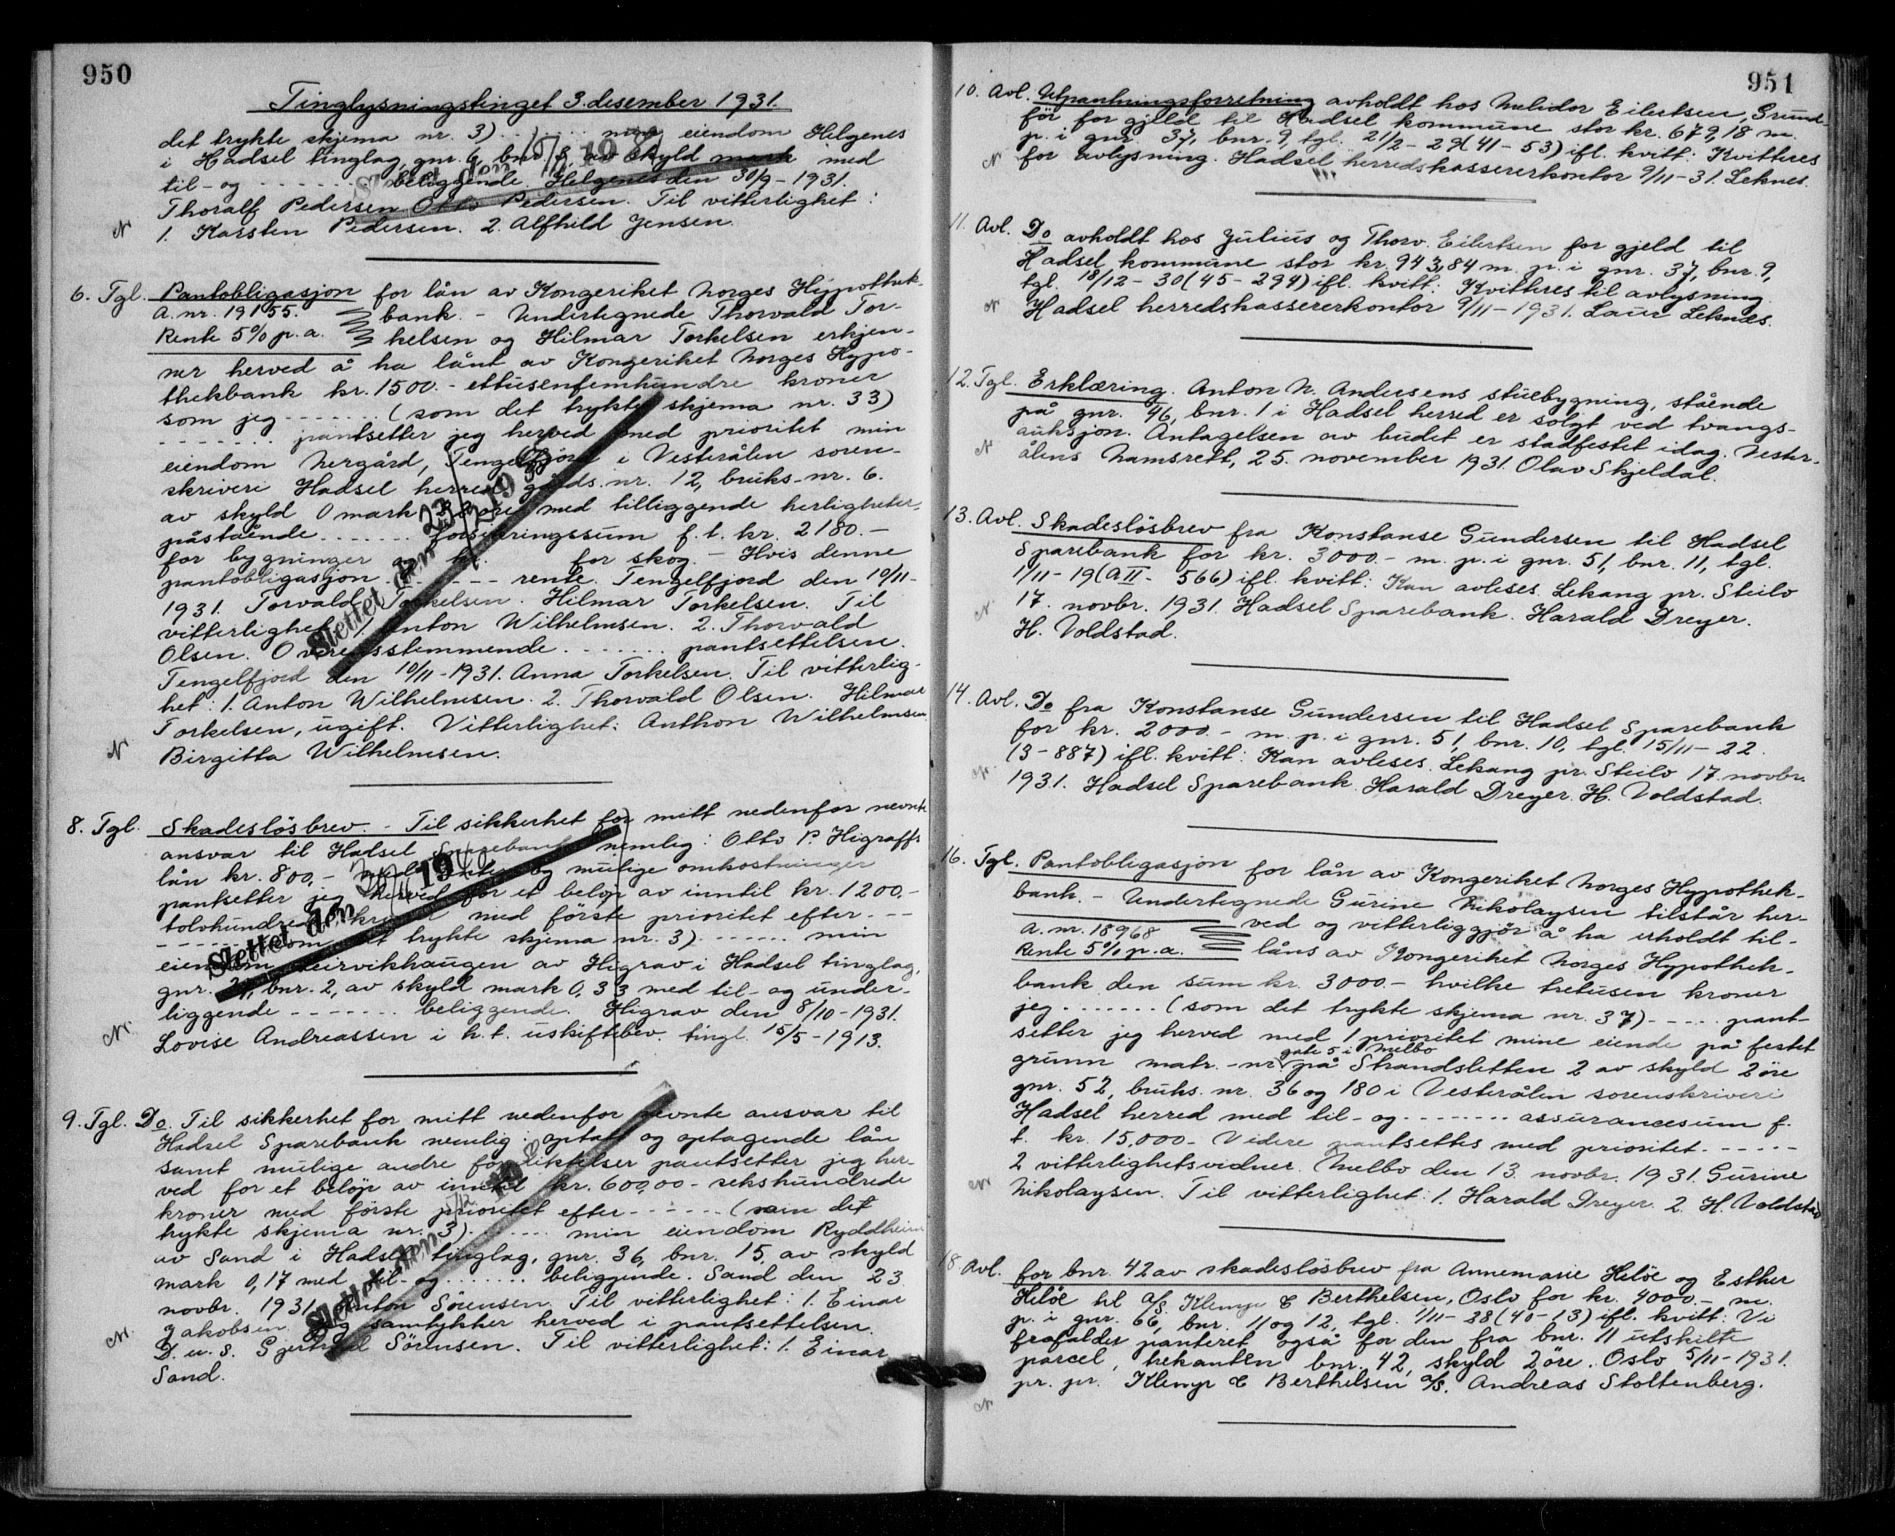 950
Tinglysningstinget 3. desember 1931.
det trykte skjema nr. 3) . . . . . . . min eiendom Helgenes
i Hadsel tinglag gnr. 6, bnr. 8, av skyld mark med
til- og - - - - - - - beliggende. Helgenes den 30/9 - 1931.
Thoralf Pedersen Otto Pedersen. Til vitterlighet:
N 1. Karsten Pedersen. 2. Alfhild Jensen.
6. Tgl. Pantobligasjon for lån av Kongeriket Norges Hypothek-
A. nr. 19155. bank. - Undertegnede Thorvald Tor-
Rente 5% p.a. kelsen og Hilmar Torkelsen erkjen-
ner herved å ha lånt av Kongeriket Norges Hypo-
thekbank kr. 1500.- ettusenfemhundre kroner
som jeg . . . . . . . (som det trykte skjema nr. 33)
. . . . . . . pantsetter jeg herved med prioritet min
eiendom Nergård, Tengelfjord i Vesterålen soren-
skriveri Hadsel herred gårds.nr. 12, bruks-nr. 6.
av skyld 0 mark øre med tilliggende herligheter,
påstående . . . . . . . forsikringssum f.t. kr. 2180.-
for bygninger og kr. for skog. - Hvis denne
pantobligasjon . - - - - rente. Tengelfjord den 10/11-
1931. Torvald Torkelsen. Hilmar Torkelsen. Til
vitterlighet: 1. Anton Wilhelmsen. 2. Thorvald
Olsen. Overensstemmende . . . . . . . pantsettelsen.
Tengelfjord den 10/11-1931. Anna Torkelsen. Til vitterlig-
het: 1. Anton Wilhelmsen. 2. Thorvald Olsen. Hilmar
Torkelsen, ugift. Vitterlighet: Anthon Wilhelmsen
N Birgitta Wilhelmsen.
Slettet den 23
8. Tgl. Skadesløsbrev. - Til sikkerhet for mitt nedenfor nevnte
ansvar til Hadsel Sparebank nemlig: Otto P. Higraffs
lån kr. 800,- med renter og mulige omkostninger
pantsetter jeg herved for et beløp av inntil kr. 1200,-
tolvhundre kroner med første prioritet efter - - -
- - - - - (som det trykte skjema nr. 3) . . . . . . min
eiendom Leirvikhaugen av Higrav i Hadsel tinglag,
gnr. bnr. 2, av skyld mark 0,33 med til- og under-
liggende - - - - - - - beliggende. Higrav den 8/10-1931.
Nr. Lovise Andreassen i h.t. uskiftebev. tingl. 15/5-1913.
Slettet den
9. Tgl. Do. Til sikkerhet for mitt nedenfor nevnte ansvar til
Hadsel Sparebank nemlig: optatt og optagende lån
samt mulige andre forpliktelser pantsetter jeg her-
ved for et beløp av inntil kr. 600,00 - sekshundrede
kroner med første prioritet efter - - - - - - (som det
trykte skjema nr. 3) . . . . . . min eiendom Ryddheim
av Sand i Hadsel tinglag, gnr. 36, bnr. 15, av skyld
mark 0,17 med til- og . . . . . . . beliggende. Sand den 23
novbr. 1931. Anton Sørensen. Til vitterlighet: 1. Einar
Nr. Jakobsen. Jeg samtykker herved i pantsettelsen.
D.u.s. Gjertrud Sørensen. Til vitterlighet: 1. Einar
Sand.
Slettet den
951
10. Avl. Utpantningsforretning avholdt hos Melidor Eilertsen, Grund-
før for gjeld til Hadsel kommune stor kr. 679,18 m.
p. i gnr. 37, bnr. 9, tgl. 21/2-29 (41-53) ifl. kvitt: Kvitteres
N for avlysning. Hadsel herredskassererkontor 9/11-31. Leknes.
11. Avl. Do avholdt hos Julius og Thorv. Eilertsen for gjeld til
Hadsel kommune stor kr. 943,84 m. p. i gnr. 37, bnr. 9,
tgl. 18/12-30 (45-294) ifl. kvitt: Kvitteres til avlysning.
N Hadsel herredskassererkontor 9/11-1931. Laur Leknes.
12. Tgl. Erklæring. Anton N. Andersens stuebygning, stående
på gnr. 46, bnr. 1 i Hadsel herred er solgt ved tvangs-
auksjon. Antagelsen av budet er stadfestet idag. Vester-
N ålens Namsrett, 25. november 1931. Olav Skjeldal.
13. Avl. Skadesløsbrev fra Konstanse Gundersen til Hadsel
Sparebank for kr. 3000.- m. p. i gnr. 51, bnr. 11, tgl.
1/11-19 (AII - 566) ifl. kvitt: Kan avleses. Lekang pr. Steilo
N. 17. novbr. 1931. Hadsel Sparebank. Harald Dreyer.
H. Voldstad.
14. Avl. Do fra Konstanse Gundersen til Hadsel Sparebank
for kr. 2000.- m. p. i gnr. 51, bnr. 10, tgl. 15/11-22.
(3-887) ifl. kvitt: Kan avleses. Lekang pr. Steilo 17. novbr.
1931. Hadsel Sparebank. Harald Dreyer. H. Voldstad.
16. Tgl. Pantobligasjon for lån av Kongeriket Norges Hypothek-
bank. - Undertegnede Gurine Nikolaysen tilstår her-
A. nr. 18968 ved og vitterliggjør å ha erholdt til-
Rente 5% p.a. låns av Kongeriket Norges Hypothek-
bank den sum kr. 3000.- hvilke tretusen kroner
jeg . . . . . . . (som det trykte skjema nr. 37) - - - - pant-
setter jeg herved med 1 prioritet mine eiende på festet
gate 5 i Melbo
grunn matr.-nr. på Strandsletten 2 av skyld 2 øre
gnr. 52, bruks.nr. 36 og 180 i Vesterålen sorenskriveri
Hadsel herred med til- og - - - - - - - assurancesum f.
t. kr. 15,000.- Videre pantsettes med prioritet. - - - - -
2 vitterlighetsvidner. Melbo den 13. novbr. 1931. Gurine
Nr Nikolaysen. Til vitterlighet: 1. Harald Dreyer. 2. H. Voldstad
18. Avl. for bnr. 42 av skadesløsbrev fra Annemarie Heløe og Esther
Heløe til A/S. Klemp & Berthelsen, Oslo for kr. 4000.- m.
p. i gnr. 66, bnr. 11 og 12, tgl. 1/11-28 (40-13) ifl. kvitt: Vi
frafalder panteret også for den fra bnr. 11 utskilte
parcel, hekanten bnr. 42, skyld 2 øre. Oslo 5/11-1931.
N pr. pr. Klemp & Berthelsen A/S. Andreas Stoltenberg.